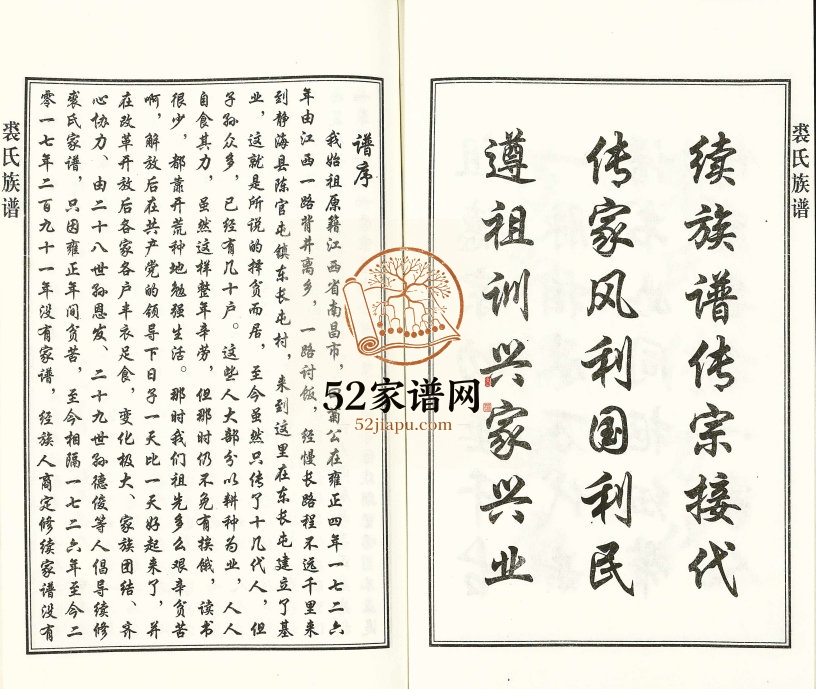 裘氏族谱
续族谱传宗接代
传家风利国利民
遵祖训兴家兴业
谱序
我始祖原籍江西省南昌市,甫公在雍正四年一七二六
年由江西一路背井离乡,一路讨饭,经慢长路程不远千里来
到静海县陈官屯镇东长屯村,来到这里在东长屯建立了基
业,这就是所说的择贫而居,至今虽然只传了十几代人,但
子孙众多,已经有几十户。这些人大部分以耕种为业,人人
自食其力,虽然这样整年辛劳,但那时仍不免有挨饿,读书
很少,都靠开荒种地勉强生活。那时我们祖先多么艰辛贫苦
啊,解放后在共产党的领导下日子一天比一天好起来了,并
在改革开放后各家各户丰衣足食,变化极大、家族团结、齐
心协力、由二十八世孙恩发、二十九世孙德俊等人倡导续修
裘氏家谱,只因雍正年间贫苦,至今相隔一七二六年至今二
零一七年二百九十一年没有家谱,经族人商定修续家谱没有
裘氏族谱
52家谱网
52jiapu.com